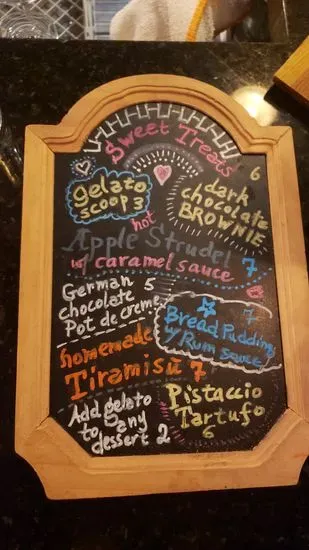 Sweet Treats
gelato
scoop 3
6
dark
chocolate
BROWNIE
hot
Apple Strudel 7
w/ caramel sauce
German 5
chocolate
Pot de creme
Bread Pudding 7
w/ Rum sauce
homemade
Tiramisu 7
Add gelato
to any
dessert 2
Pistaccio
Tartufo
6